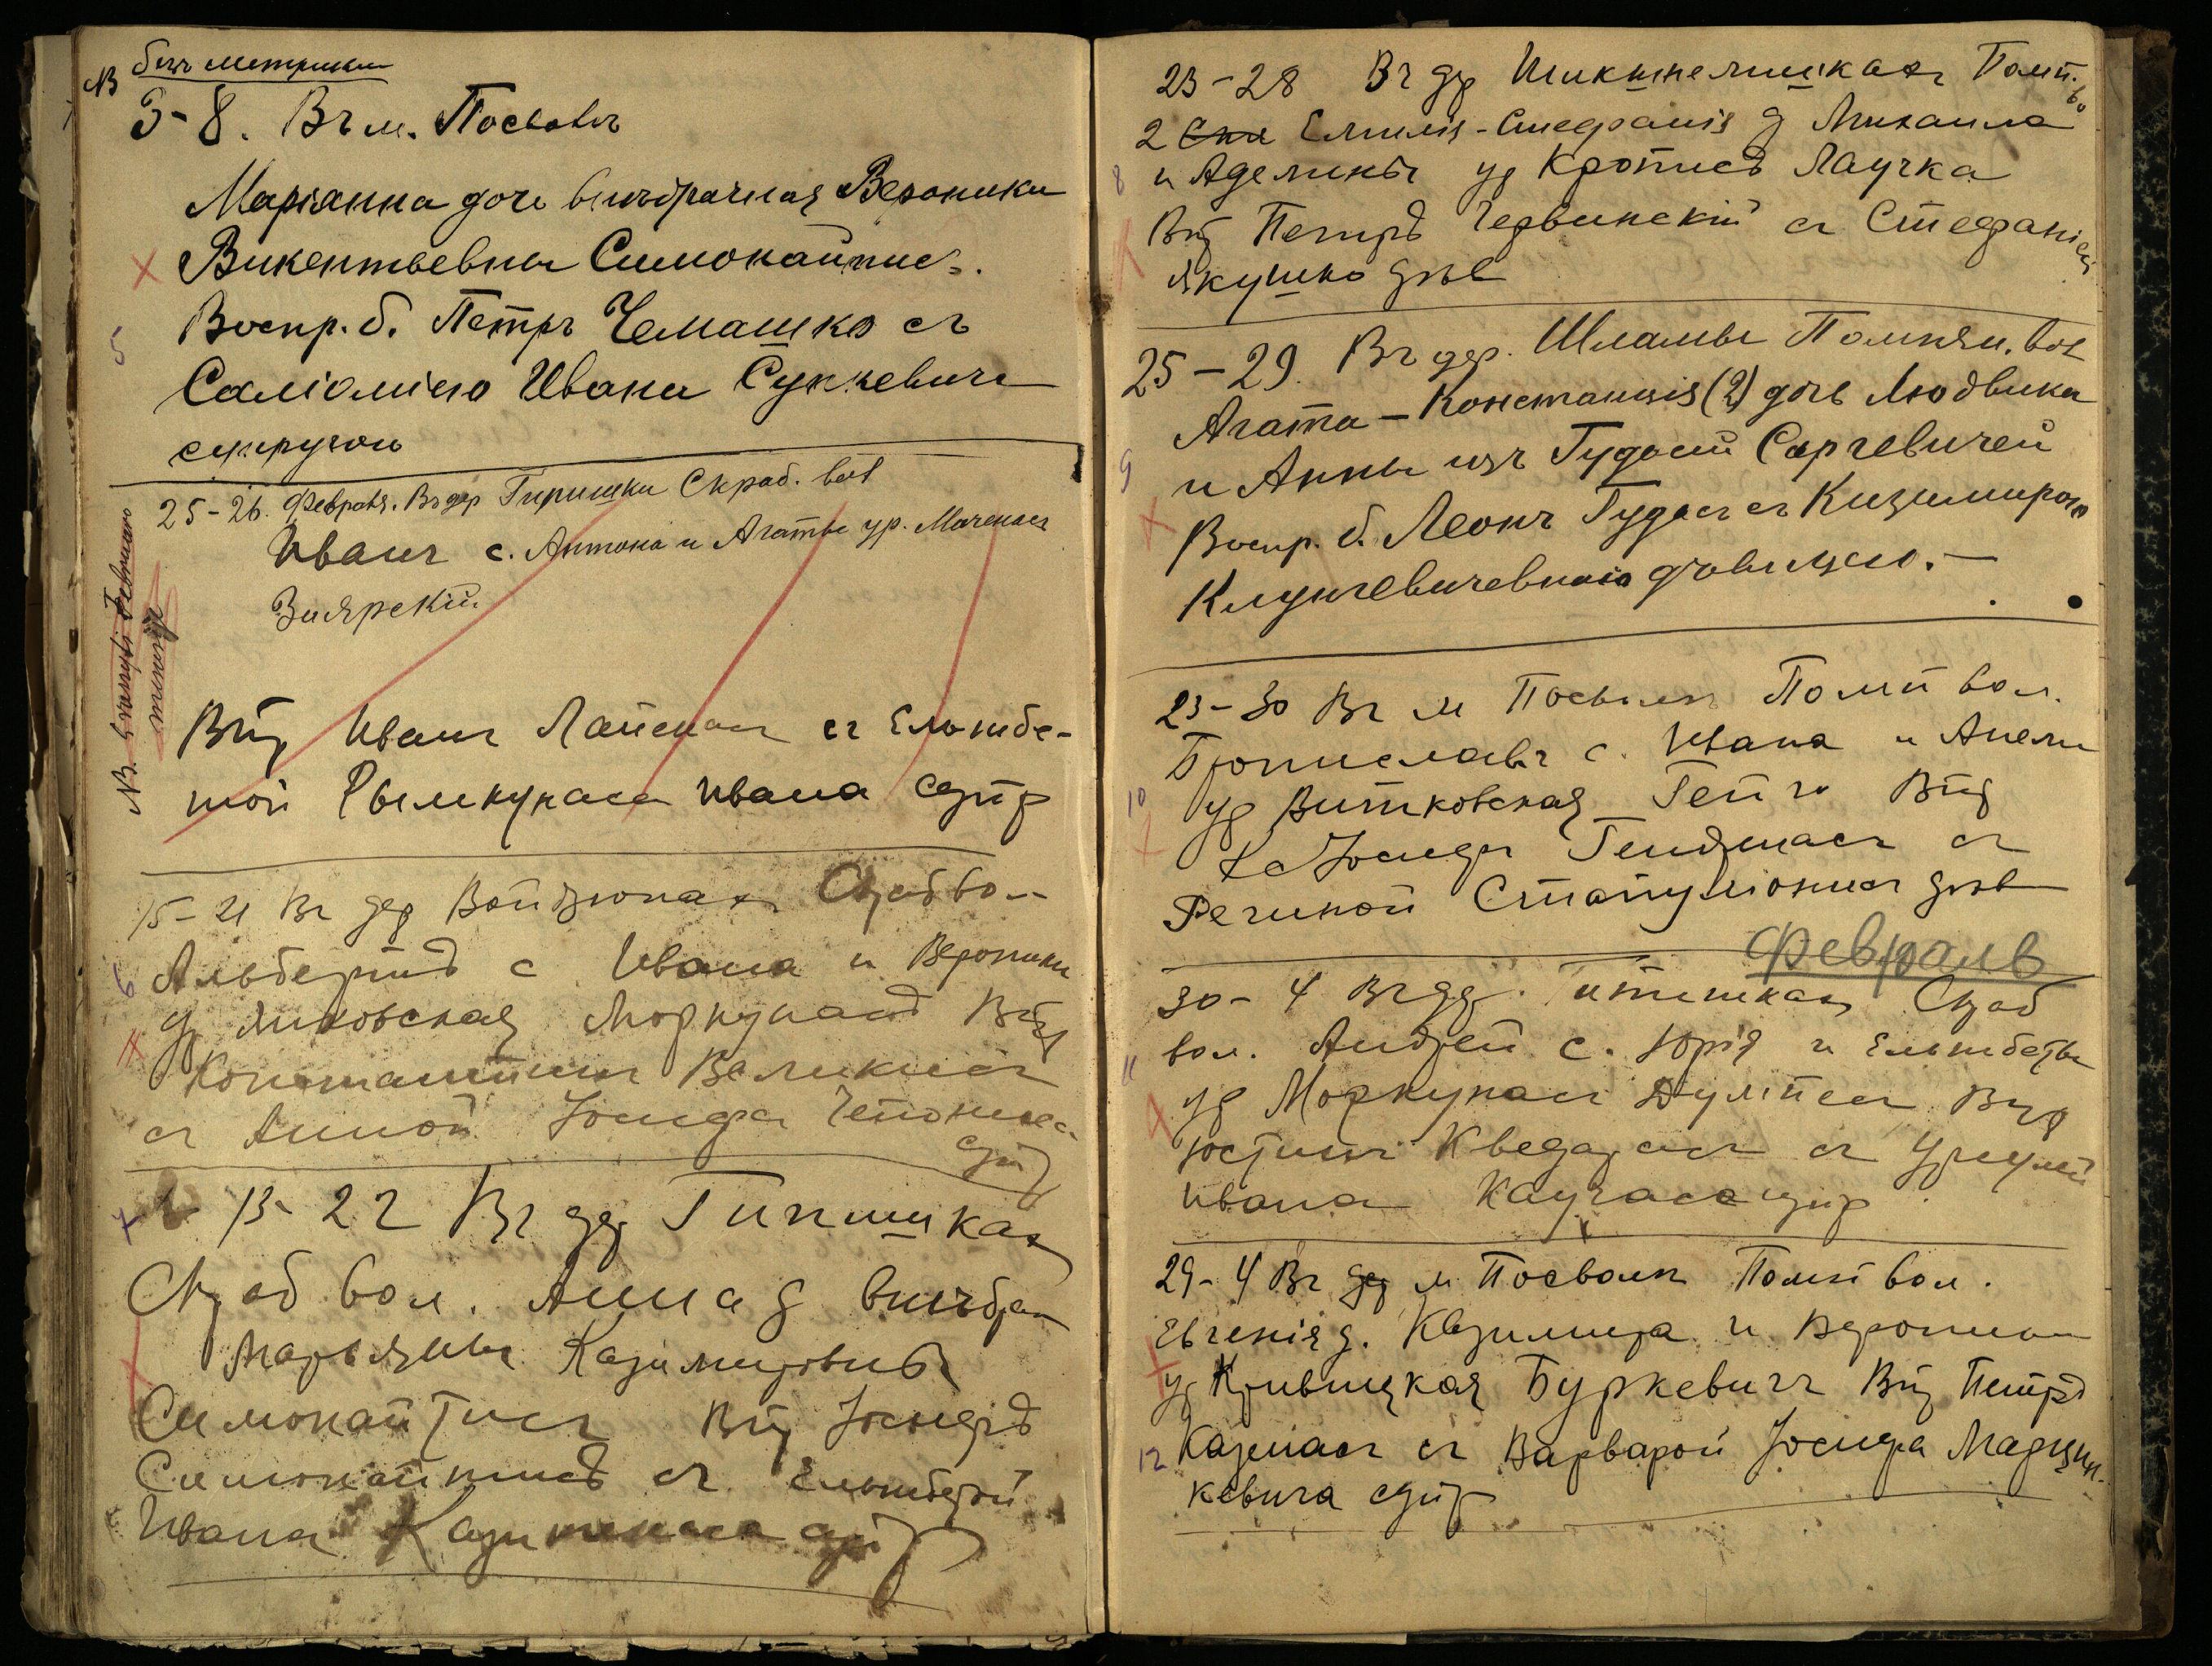 NB безъ метрики
3-8. Въ м. Посволь
Маріанна дочь внѣбрачная Вероники
Викентьевны Симонайтисъ.
5 Воспр. б. Петръ Чемашко съ
Саліоміею Ивана Сункевича
супругою
25-26. Февраля. Въ дер Гиришки Скраб. вол
Иванъ с. Антона и Агаты ур.
Визярскій
NB.
Впр Иванъ съ Ельжбе-
той Рымкунаса Ивана супр
15-21 Въ дер Войдзюнахъ Скраб вол
6 Альбертъ с Ивана и Вероники
ур Моркунасъ Впр
Константинъ Великисъ
съ Анной Іосифа Чепониса
супр
7 13-22 Въ дер Гипишкахъ
Скраб вол. Анна д внѣбрач
Марьянны Казимировны
Симонайтисъ Впр Іосифъ
Симонайтисъ съ Ельжбетой
Ивана супр
23-28 Въ дер Шикшнелишкахъ Помп.
во
2 Емилія-Стефанія д Михаила
8 и Аделины ур Крописъ Лаучка
Впр Петръ Червинскій съ Стефаніей
Якушко дѣв
25-29. Въ дер. Шламы Помпян. вол
Агата-Констанція (2) дочь Людвика
9 и Анны изъ Гудасй Саргевичей
Воспр. б. Леонъ Гудасъ съ Кизимирою
дѣвицею.-
23-30 Въ м Посволь Помп вол.
Брониславъ с. Ивана и Анели
10 ур Витковская Гейго Впр
Іосифъ съ
Региной дѣв
Февраль
30-4 Въ дер. Титишкахъ Скраб
вол. Андрей с. Юрія и Ельжбеты
11 ур Моркунасъ Впр
Юстинъ Кведарасъ съ Урсулей
Ивана Каучаса супр
29-4 Въ дер м Посволь Помп вол.
Евгенія д. Казимира и Вероники
ур Кривицкая Буркевичъ Впр Петръ
12 Казенасъ съ Варварой Іосифа Марцин-
кевича супр